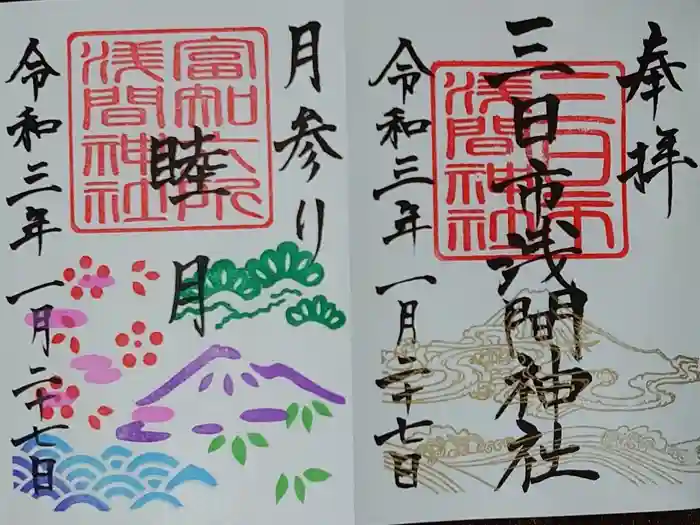 奉拝
三日市浅間神社
三日市
浅間神社
令和三年一月二十七日
月参り
睦月
富知六所
浅間神社
令和三年一月二十七日